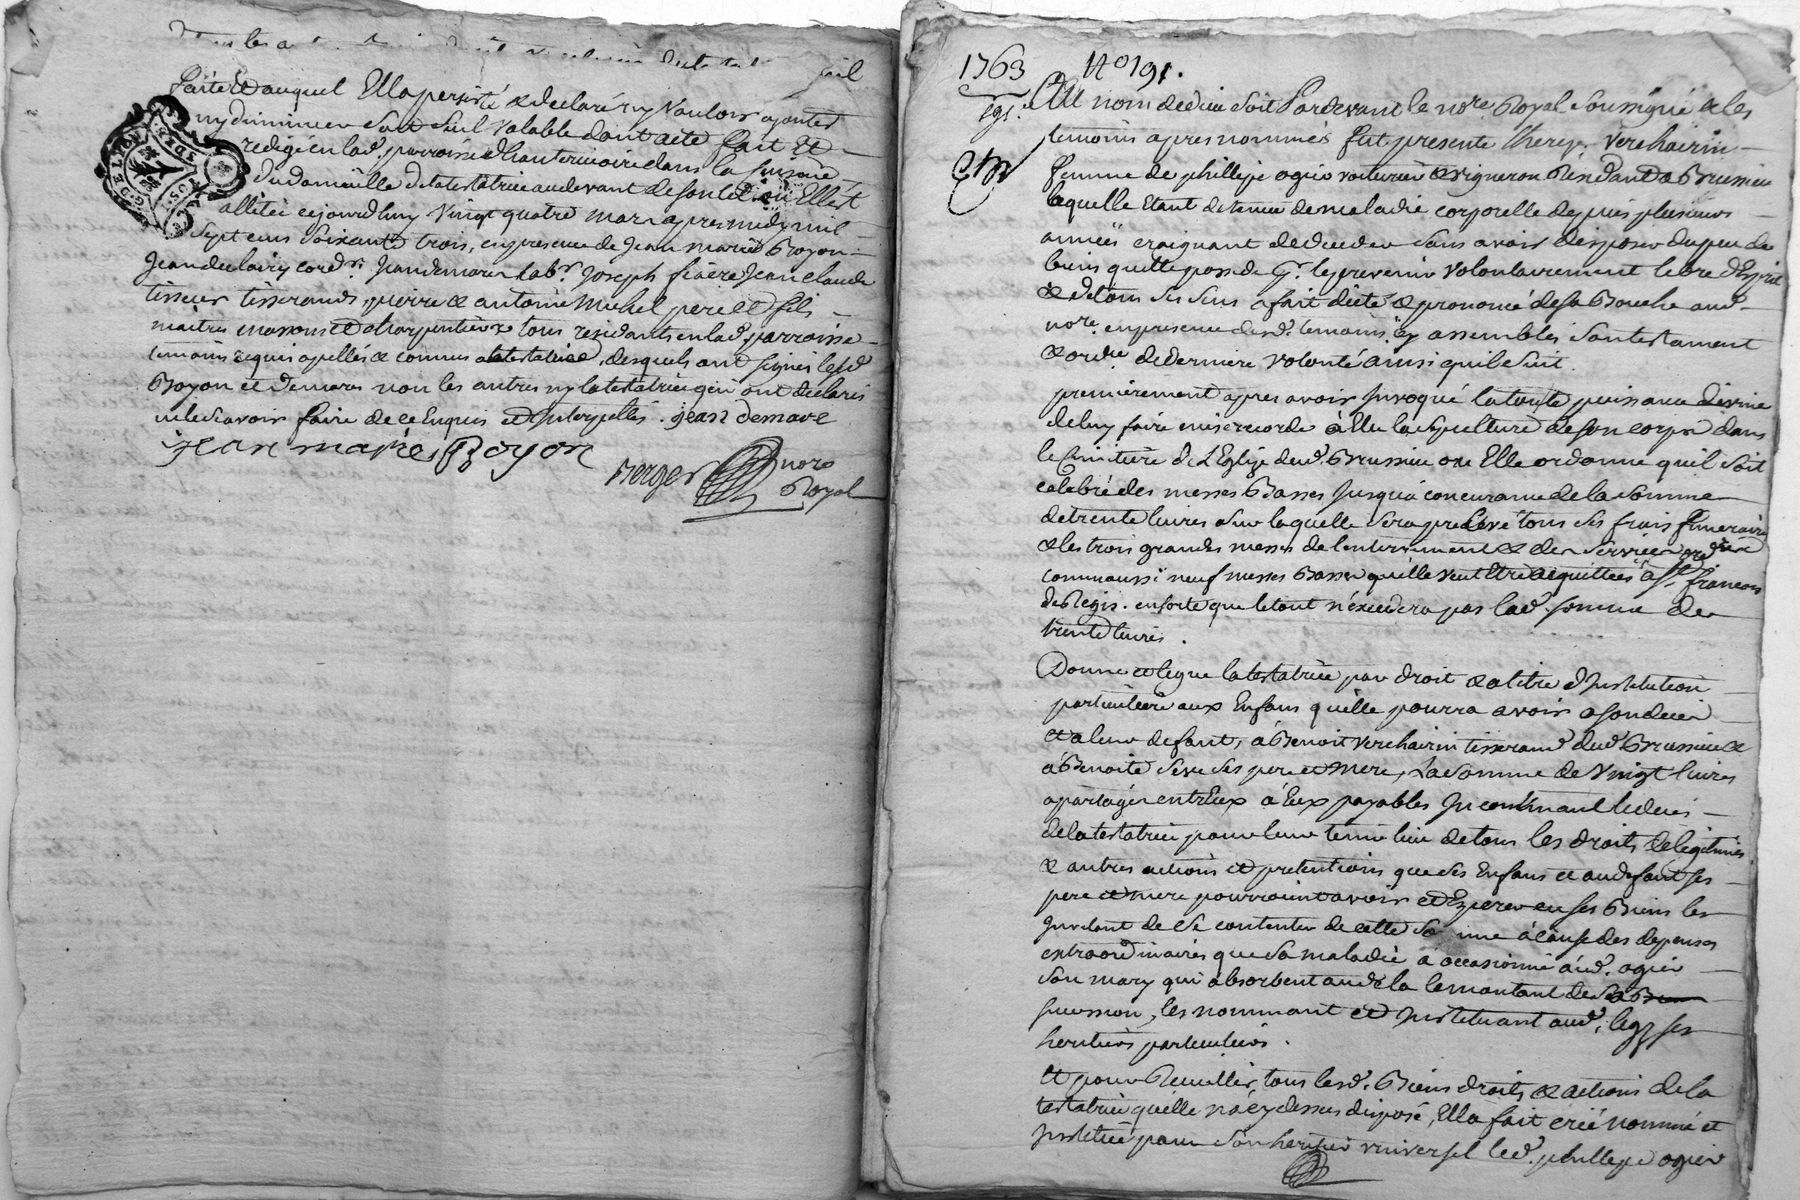 faite et auquel Ella persisté & declaré n'y vouloir ajouter
ny diminuer soit seul valable dont acte fait et
redigé en lad. parroisse d'hauterivoire dans la cuisine
du domicille de la testatrice au devant de son led. où Elle est
allitée cejourdhuy vingt quatre mars apres midy mil
sept cens soixante trois, en presence de Jean marie Royon
Jean demare Lab.r Joseph Jean claude
tisseur tisserands, pierre & antoine Michel pere et fils
maitres massons et charpentiers tous residants en lad. parroisse
temoins requis apellés & connus a la testatrice, desquels ont signés lesd.
Royon et demare non les autres ny la testatrice qui ont declaré
ne le scavoir faire de ce Enquis et Interpellés. jean demare
jean marie Royon
Berger nore
Royal
GEN. DE LYON
1763 N° 191.
Au nom de dieu soit Pardevant le nore. Royal soussigné & les
temoins apres nommés fut presente therese Verchairin
femme de phillipe ogier voiturier & vigneron Résidant a Brussieu
laquelle Etant detenue de maladie corporelle depuis plusieurs
années craignant de deceder sans avoir disposer du peu de
biens quelle possede pr. les prevenir volontairement libre d'Esprit
& de tous ses sens a fait dicté & prononcé de sa Bouche aud.
nore. en presence desd. temoins icy assemblés son testament
& ordre de derniere volonté ainsi quil suit.
premierement apres avoir Invoqué la toute puissance divine
de luy faire misericorde à Elu la sepulture de son corps dans
le cimitiere de L'Eglise dud. Brussieu ou Elle ordonne quil soit
celebré des messes Basses Jusqu'a concurance de la somme
de trente livres sur laquelle sera prelevé tous ses frais funeraires
& les trois grandes messes de l'enterrement & des services ordre
comm'aussi neuf messes Basses qu'elle veut Etre acquittées a St. francois
de Regis. en sorte que le tout n'excedera pas lad. somme de
trente livres.
Donne et legue la testatrice par droit & a titre d'Institution
particuliere aux Enfans qu'elle pourra avoir a son deces
et a leur defaut, à Benoit Verchairin tisserand dud. Brussieu &
à Benoite seve ses pere et mere, La somme de Vingt livres
a partager entr'Eux à Eux payables Incontinant le deces
de la testatrice pour leur tenir lieu de tous les droits de legitimes
& autres actions et pretentions que ses Enfans et au defaut ses
pere et mere pourroient avoir et Esperer en ses Biens les
Invitant de se contenter de cette somme à cause des depenses
extraordinaires que sa maladie a occasionné aud. ogier
son mary qui absorbent audela le montant de sa
succession, les nommant et Instituant aud. legs ses
heritiers particuliers.
Et pour Recueillir tous lesd. Biens droits & actions de la
testatrice qu'elle n'a cy dessus disposé, Ella fait créé nommé et
Institué pour son heritier universel led. phillipe ogier